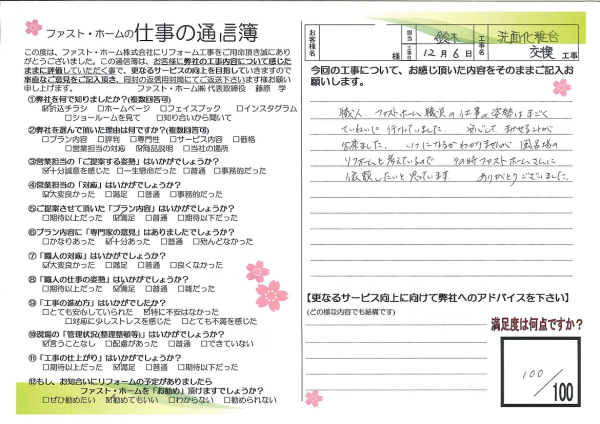 ファスト・ホームの仕事の通信簿
この度は、ファスト・ホーム株式会社にリフォーム工事をご用命頂き誠にあり
がとうございました。この通信簿は、お客様に弊社の工事内容について感じた
ままに評価していただく事で、更なるサービスの向上を目指していきますので
率直なご意見をご記入頂き、同封の返信用封筒にてご返送下さいます様お願い
申し上げます。 ファスト・ホーム㈱ 代表取締役 藤原 学
①弊社を何で知りましたか?(複数回答可)
☑折込チラシ □ホームページ □フェイスブック □インスタグラム
□ショールームを見て □知り合いから聞いて
②弊社を選んで頂いた理由は何ですか?(複数回答可)
□プラン内容 □評判 □専門性 □サービス内容 □価格
□営業担当の対応 ☑商品説明 □当社の場所
③営業担当の「ご提案する姿勢」はいかがでしょうか?
☑十分誠意を感じた □一生懸命だった □普通 □事務的だった
④営業担当の「対応」はいかがでしょうか?
☑大変良かった □満足 □普通 □事務的だった
⑤ご提案させて頂いた「プラン内容」はいかがでしょうか?
□期待以上だった ☑満足 □普通 □期待以下だった
⑥プラン内容に「専門家の意見」はありましたでしょうか?
□かなりあった ☑十分あった □普通 □殆んどなかった
⑦「職人の対応」はいかがでしょうか?
☑大変良かった □満足 □普通 □良くなかった
⑧「職人の仕事の姿勢」はいかがでしょうか?
□期待以上だった ☑満足 □普通 □雑だった
⑨「工事の進め方」はいかがでしょうか?
□とても安心していられた ☑特に不安はなかった
□対応に少しストレスを感じた □とても不満を感じた
⑩現場の「管理状況(整理整頓等)」はいかがでしょうか?
☑言うことなし □配慮があった □普通 □できていない
⑪「工事の仕上がり」はいかがでしょうか?
□期待以上だった ☑満足 □普通 □期待以下だった
⑫もし、お知合いにリフォームの予定がありましたら
ファスト・ホームを「お勧め」頂けますでしょうか?
□ぜひ勧めたい ☑勧めてもいい □わからない □勧められない
お客様名 様
担当 鈴木
工事日 12月6日
工事名 洗面化粧台
交換 工事
今回の工事について、お感じ頂いた内容をそのままご記入お
願いします。
職人、ファストホーム職員の仕事の姿勢はすごく
ていねいに行っていました。 安心して まかせることが
出来ました。いつになるかわかりませんが 風呂場の
リフォームも考えているので その時ファストホームさんに
依頼したいと思っています ありがとうございました。
【更なるサービス向上に向けて弊社へのアドバイスを下さい】
(どの様な内容でも結構です)
満足度は何点ですか?
100/100